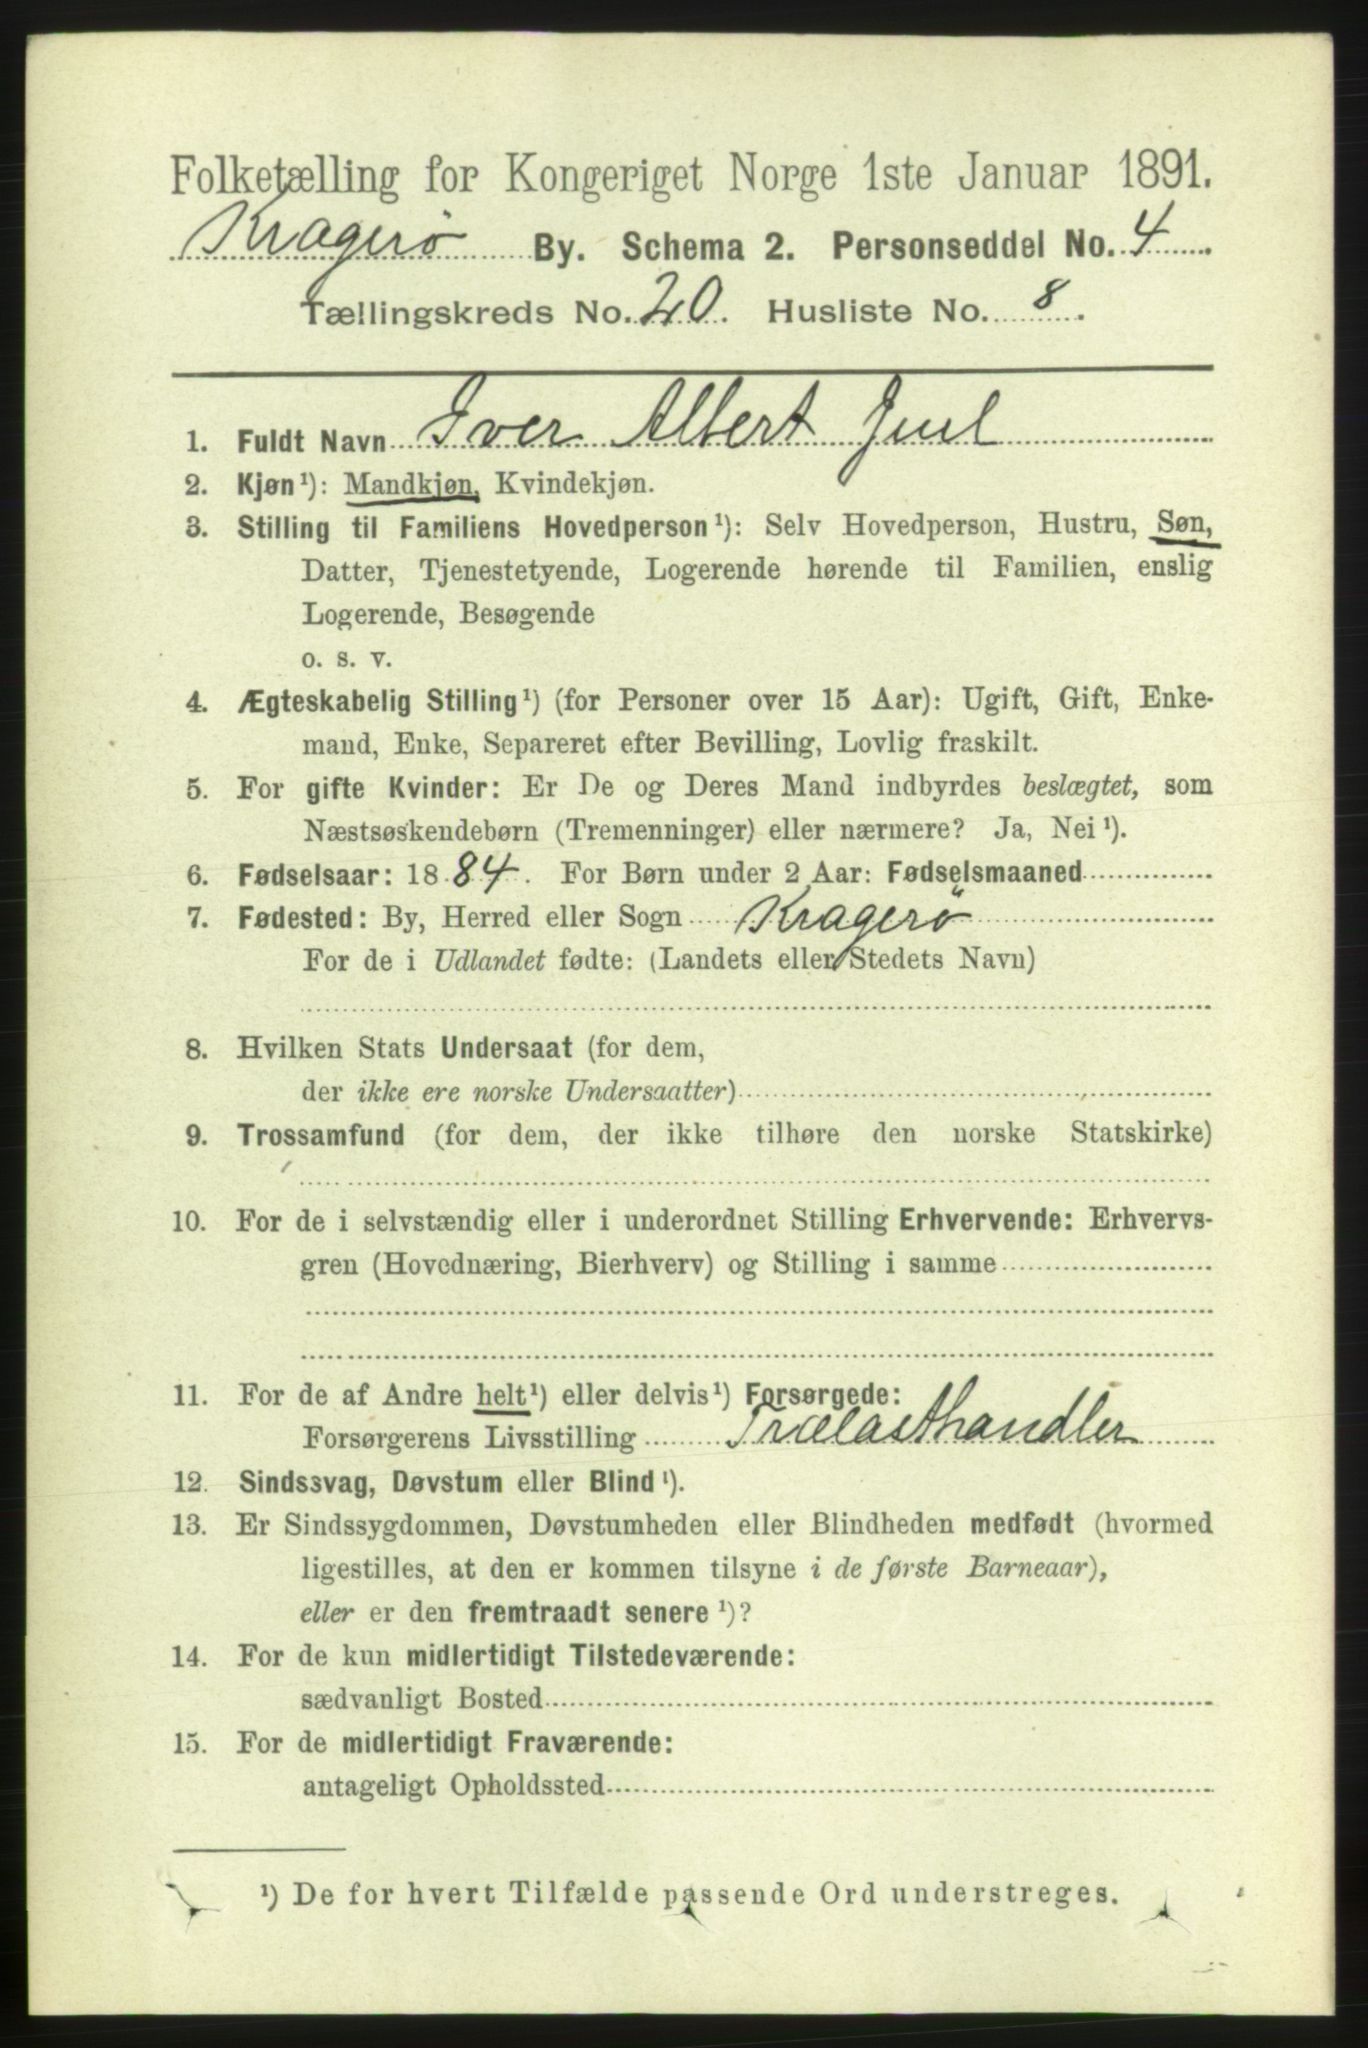 Folketælling for Kongeriget Norge 1ste Januar 1891.
Kragerö By. Schema 2. Personseddel No. 4
Tællingskreds No. 20. Husliste No. 8.
1. Fuldt Navn Iver Albert Juul
2. Kjøn¹): Mandkjøn, Kvindekjøn.
3. Stilling til Familiens Hovedperson¹): Selv Hovedperson, Hustru, Søn,
Datter, Tjenestetyende, Logerende hørende til Familien, enslig
Logerende, Besøgende
o. s. v.
4. Ægteskabelig Stilling¹) (for Personer over 15 Aar): Ugift, Gift, Enke-
mand, Enke, Separeret efter Bevilling, Lovlig fraskilt.
5. For gifte Kvinder: Er De og Deres Mand indbyrdes beslægtet, som
Næstsøskendebørn (Tremenninger) eller nærmere? Ja, Nei¹).
6. Fødselsaar: 1884. For Børn under 2 Aar: Fødselsmaaned
7. Fødested: By, Herred eller Sogn Kragerö
For de i Udlandet fødte: (Landets eller Stedets Navn)
8. Hvilken Stats Undersaat (for dem,
der ikke ere norske Undersaatter)
9. Trossamfund (for dem, der ikke tilhøre den norske Statskirke)
10. For de i selvstændig eller i underordnet Stilling Erhvervende: Erhvervs-
gren (Hovednæring, Bierhverv) og Stilling i samme
11. For de af Andre helt¹) eller delvis¹) Forsørgede:
Forsørgerens Livsstilling Trælasthandler
12. Sindssvag, Døvstum eller Blind¹).
13. Er Sindssygdommen, Døvstumheden eller Blindheden medfødt (hvormed
ligestilles, at den er kommen tilsyne i de første Barneaar),
eller er den fremtraadt senere¹)?
14. For de kun midlertidigt Tilstedeværende:
sædvanligt Bosted
15. For de midlertidigt Fraværende:
antageligt Opholdssted
¹) De for hvert Tilfælde passende Ord understreges.